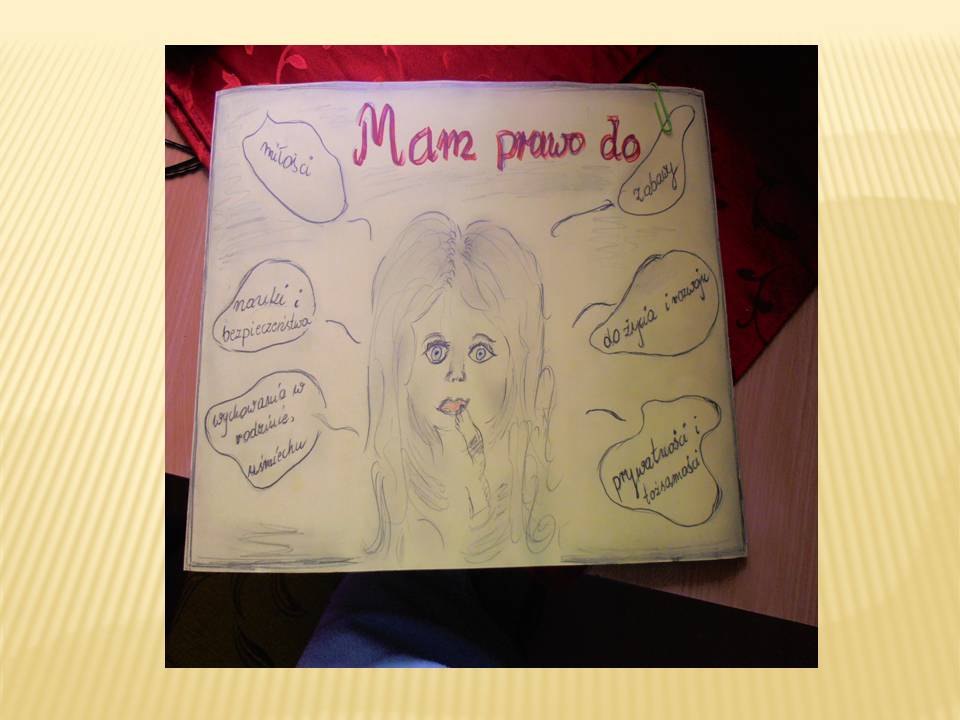 Mam prawo do
miłości
zabawy
nauki i
bezpieczeństwa
do życia i rozwoju
wychowania w
rodzinie,
uśmiechu
prywatności i
tożsamości